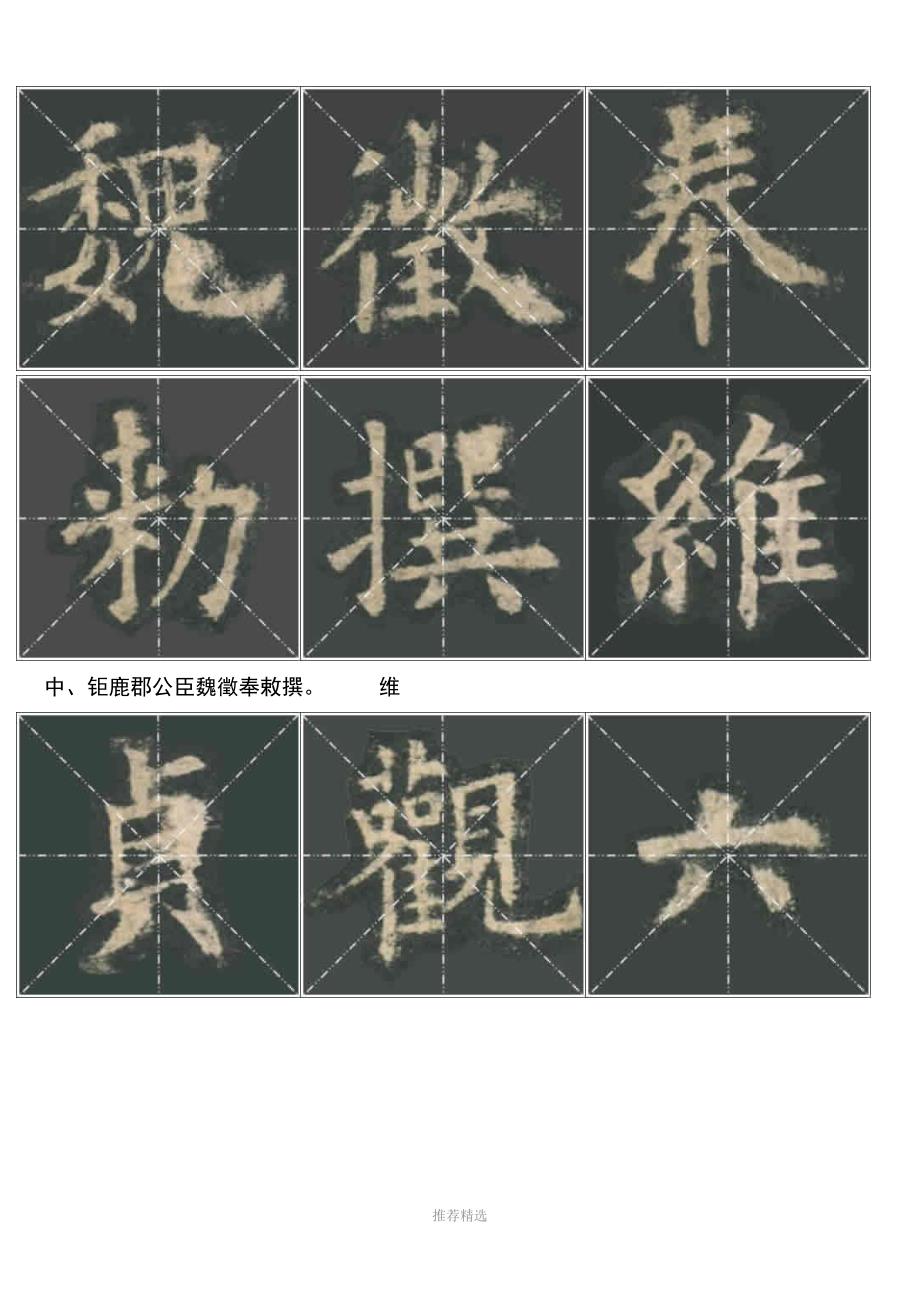 魏徵奉
勑撰維
中、钜鹿郡公臣魏徵奉敕撰。 维
貞觀六
推荐精选